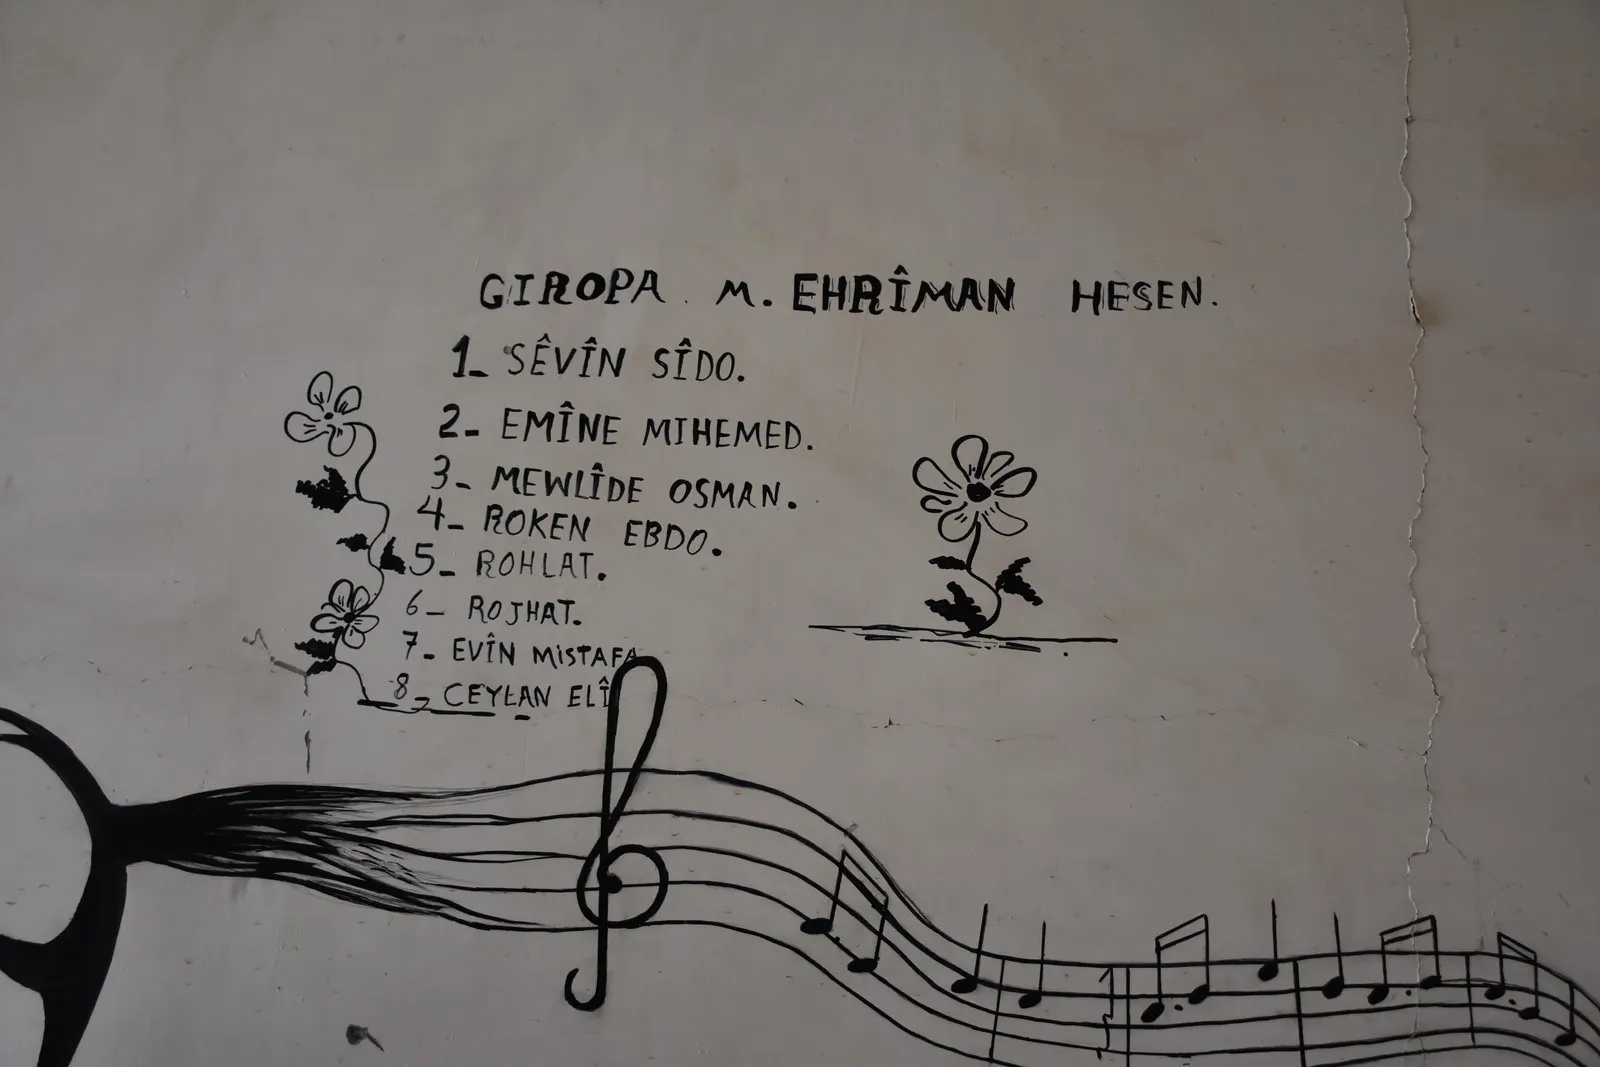 GIROPA M. EHRÎMAN HESEN.
1_ SÊVÎN SÎDO.
2- EMÎNE MIHEMED.
3- MEWLÎDE OSMAN.
4- ROKEN EBDO.
5- ROHLAT.
6- ROJHAT.
7- EVÎN MISTAFA
8- CEYLAN ELÎ